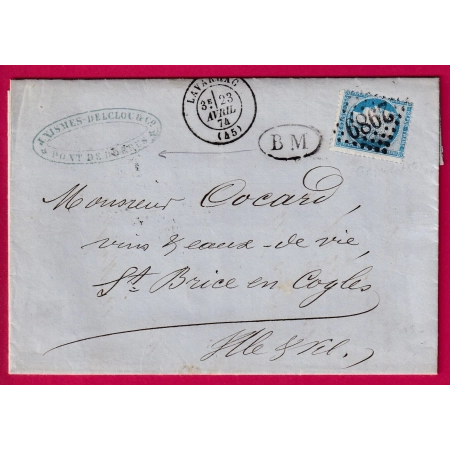 LAVARDAC
3E 23
AVRIL
74
(45)
J. NISMES-DELCLOU & CO
PONT DE BORDES
BM
2989
Monsieur Cocard,
vins & eaux-de-vie,
St Brice en Cogles
Ille & Vil.